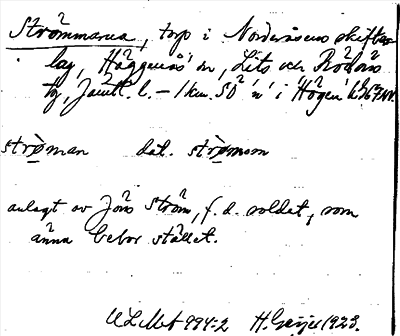 Strömmarna, torp i Norderåsens skifts-
lag, Häggenås' sn, Lits och Rödöns
tg, Jämtl. l. – 1 km. SO 'n' i 'Högen'
strøman dat. strømom
anlagt av Jöns Ström, f. d. soldat, som
ännu bebor stället.
ULMA 994:2 H. Geijer 1923.